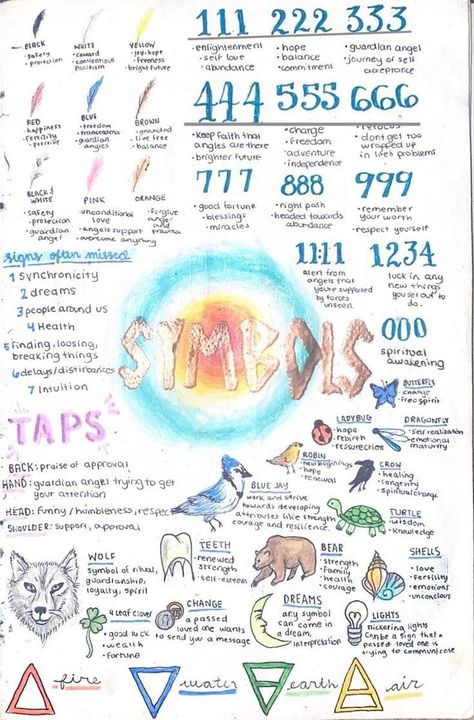 111 222 333
BLACK
• safety
• protection
WHITE
• coward
YELLOW
• joy • hope
• freeness
• bright future
• enlightenment
• self love
• abundance
• hope
• balance
• commitment
• guardian angel
• journey of self
acceptance
444 555 666
RED
• happiness
• fertility
BLUE
• freedom
• guardian
angels
BROWN
• grounded
• live free
• balance
• keep faith that
angels are there
• brighter future
• change
• freedom
• adventure
• independence
• refocus
• dont get too
wrapped up
in life's problems
777 888 999
BLACK &
WHITE
• safety
• protection
• guardian
angel
PINK
• unconditional
love
• angels support
• overcome anything
ORANGE
• forgive
anger and
trauma
• good fortune
• blessings
• miracles
• right path
• headed towards
abundance
• remember
your worth
• respect yourself
signs often missed
1 synchronicity
2 dreams
3 people around us
4 Health
5 Finding, loosing,
breaking things
6 delays/disturbances
7 Intuition
11:11
alert from
angels that
you're supported
by forces
unseen.
1234
luck in any
new things
you set out to
do.
000
spiritual
awakening
SYMBOLS
BUTTERFLY
• change
• free spirit
TAPS
BACK: praise of approval
HAND: guardian angel trying to get
your attention
HEAD: Funny/humbleness, respect
SHOULDER: support, approval
LADYBUG
• hope
• rebirth
• resurrection
DRAGONFLY
• self realization
• emotional
maturity
ROBIN
• new beginnings
• hope
• renewal
CROW
• healing
• longevity
• spiritual change
BLUE JAY
work and strive
towards developing
attributes like strength
courage and resilience.
TURTLE
• wisdom
• knowledge
WOLF
symbol of ritual,
guardianship,
loyalty, spirit
TEETH
• renewed
strength
• self-esteem
BEAR
• strength
• family
• health
• courage
SHELLS
• love
• fertility
• emotions
• unconcious
4 leaf clover
• good luck
• wealth
• fortune
CHANGE
a passed
loved one wants
to send you a message
DREAMS
any symbol
can come in
a dream,
interpretation
LIGHTS
flickering lights
can be a sign that a
passed loved one is
trying to communicate
fire
water
earth
air